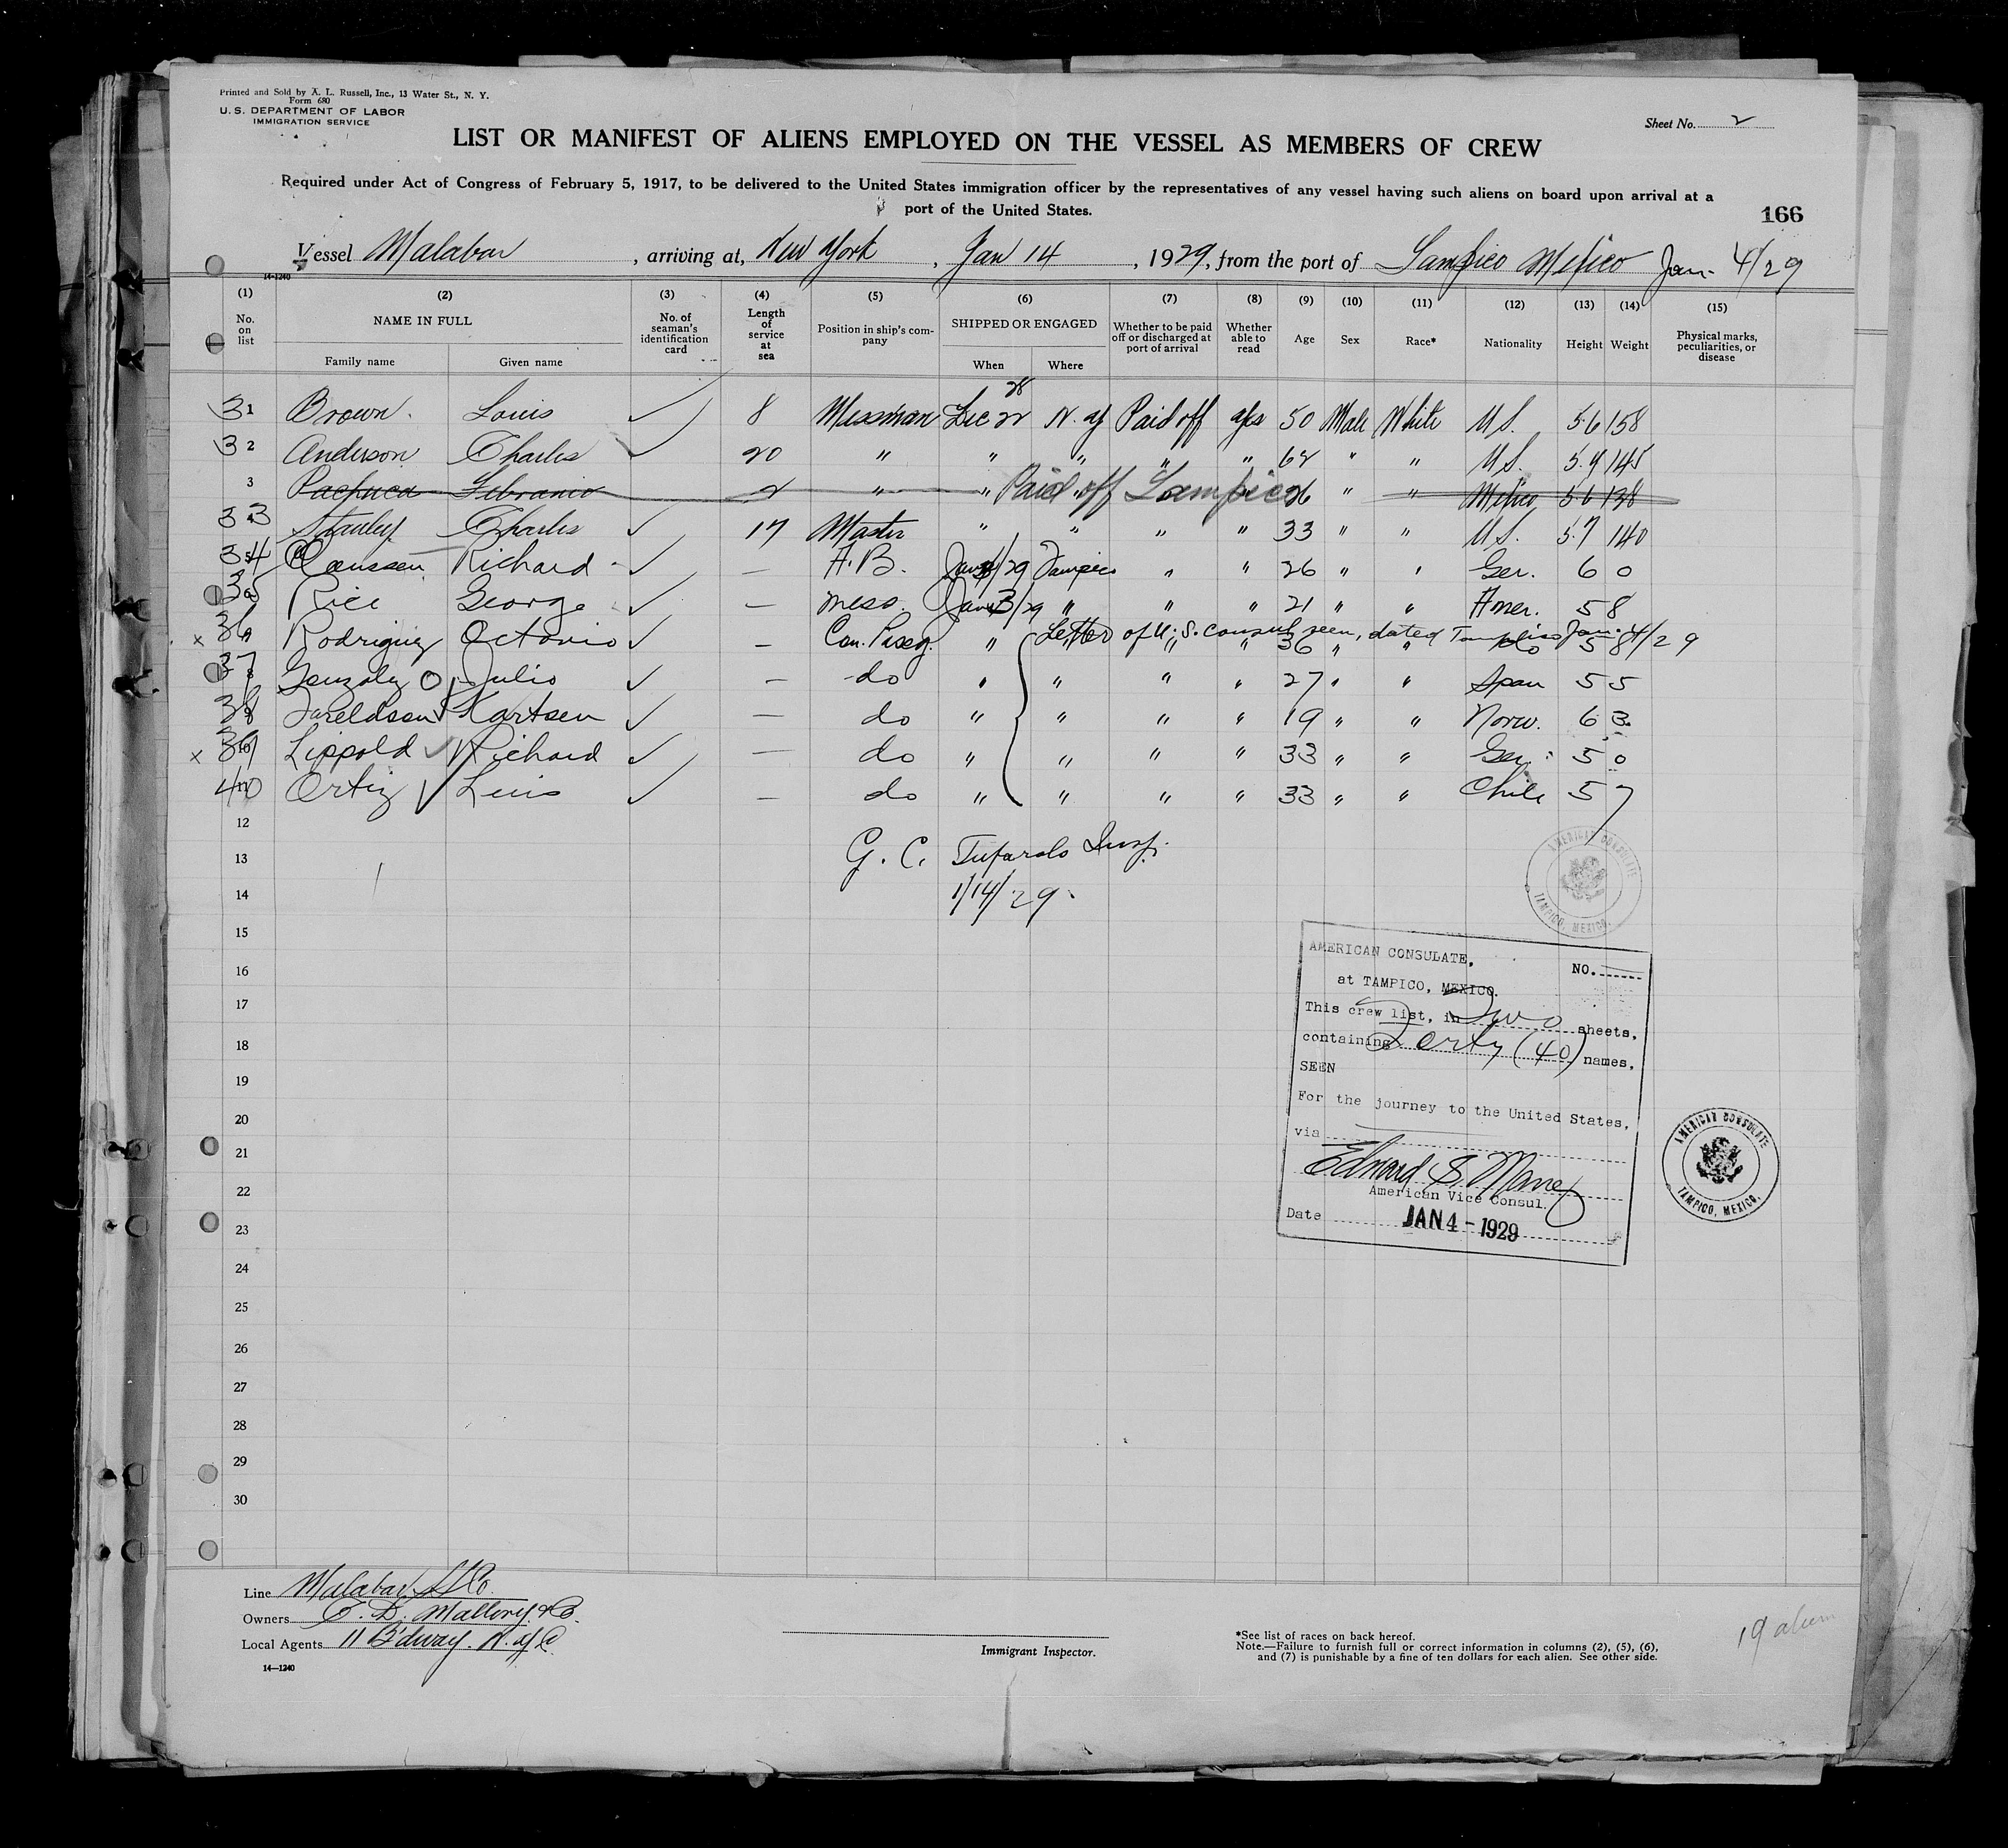 Printed and Sold by A. L. Russell, Inc., 13 Water St., N. Y.
Form 680
U. S. DEPARTMENT OF LABOR
IMMIGRATION SERVICE
Sheet No. 2
LIST OR MANIFEST OF ALIENS EMPLOYED ON THE VESSEL AS MEMBERS OF CREW
Required under Act of Congress of February 5, 1917, to be delivered to the United States immigration officer by the representatives of any vessel having such aliens on board upon arrival at a
port of the United States.
166
Vessel Malabar, arriving at, New York, Jan 14, 1929, from the port of Tampico Mexico Jan. 4/29
14-1240
(1) No. on list
(2) NAME IN FULL Family name Given name
(3) No. of seaman's identification card
(4) Length of service at sea
(5) Position in ship's company
(6) SHIPPED OR ENGAGED When Where
(7) Whether to be paid off or discharged at port of arrival
(8) Whether able to read
(9) Age
(10) Sex
(11) Race*
(12) Nationality
(13) Height
(14) Weight
(15) Physical marks, peculiarities, or disease
31 Brown Louis ✓ 8 Messman Dec 22 28 N. Y Paid off yes 50 Male White U S. 5.6 158
32 Anderson Charles ✓ 20 " " " " " 62 " " U S. 5.9 145
3 Pachuca Libranio 2 " " Paid off Tampico 26 " " Mexico 5.6 138
33 Stanley Charles ✓ 17 Master " " " " 33 " " U S. 5.7 140
34 Claussen Richard ✓ — A. B. Jan 4/29 Tampico " " 26 " " Ger. 6 0
35 Rice George ✓ — mess. Jan 3/29 " " " 21 " " Amer. 5 8
Letter of U. S. Consul seen, dated Tampico Jan. 4/29
x 36 Rodriguez Octavio ✓ — Con. Passg. " " " 36 " " do 5 8
37 Gonzalez O Julio ✓ — do " " " " 27 " " Span 5 5
38 Kartsen ✓ — do " " " " 19 " " Norw. 6 3
x 39 Lippold Richard ✓ — do " " " " 33 " " Ger. 5 0
40 Ortiz Luis ✓ — do " " " " 33 " " Chile 5 7
12
G. C. Insp.
13
1/14/29.
14
AMERICAN CONSULATE
TAMPICO, MEXICO.
15
16
17
18
19
20
21
22
23
24
25
26
27
28
29
30
AMERICAN CONSULATE,
NO.
at TAMPICO, MEXICO.
This crew list, in Two sheets,
containing Forty (40) names,
SEEN
For the journey to the United States,
via
Edward S. Maney
American Vice Consul.
Date JAN 4 - 1929
AMERICAN CONSULATE
TAMPICO, MEXICO.
Line Malabar SS Co.
Owners C. D. Mallory & Co.
Local Agents 11 B'dway. N. Y C
14—1240
Immigrant Inspector.
*See list of races on back hereof.
Note.—Failure to furnish full or correct information in columns (2), (5), (6),
and (7) is punishable by a fine of ten dollars for each alien. See other side.
19 alien